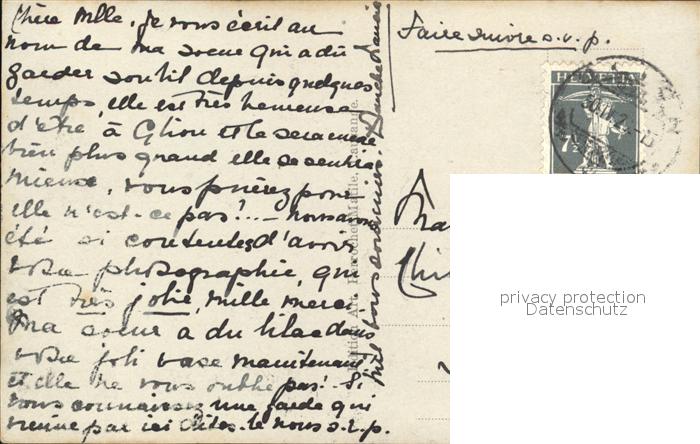 Chère Mlle, je vous écris au
nom de ma soeur qui a dû
garder son lit depuis quelques
temps, elle est très heureuse
d'être à Glion et le sera encore
bien plus quand elle se sentira
mieux, vous prierez pour
elle n'est-ce pas!... nous avons
été si contentes d'avoir
votre photographie, qui
est très jolie, mille merci
Ma soeur a du lilas dans
votre joli vase maintenant
et elle ne vous oublie pas! Si
vous connaissez une garde qui
vienne par ici dites-le nous s.v.p.
Mille bons souvenirs. Blanche
Faire suivre s.v.p.
HELVETIA
7½
privacy protection
Datenschutz